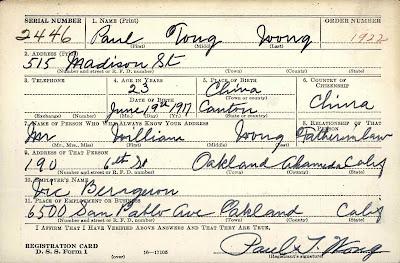 SERIAL NUMBER 1. NAME (Print) ORDER NUMBER
2446 Paul Tong Wong 1922
(First) (Middle) (Last)
2. ADDRESS (Print)
515 Madison St
(Number and street or R. F. D. number) (Town) (County) (State)
3. TELEPHONE 4. AGE IN YEARS 5. PLACE OF BIRTH 6. COUNTRY OF CITIZENSHIP
23 China
DATE OF BIRTH (Town or county)
June 19th 1917 Canton China
(Exchange) (Number) (Mo.) (Day) (Yr.) (State or country)
7. NAME OF PERSON WHO WILL ALWAYS KNOW YOUR ADDRESS 8. RELATIONSHIP OF THAT PERSON
Mr William Wong Father in law
(Mr., Mrs., Miss) (First) (Middle) (Last)
9. ADDRESS OF THAT PERSON
190 6th St Oakland Alameda Calif
(Number and street or R. F. D. number) (Town) (County) (State)
10. EMPLOYER'S NAME
Vic
11. PLACE OF EMPLOYMENT OR BUSINESS
6500 San Pablo Ave Oakland Calif
(Number and street or R. F. D. number) (Town) (County) (State)
I AFFIRM THAT I HAVE VERIFIED ABOVE ANSWERS AND THAT THEY ARE TRUE.
REGISTRATION CARD
D. S. S. Form 1 16—17105
(over) Paul T. Wong
(Registrant's signature)